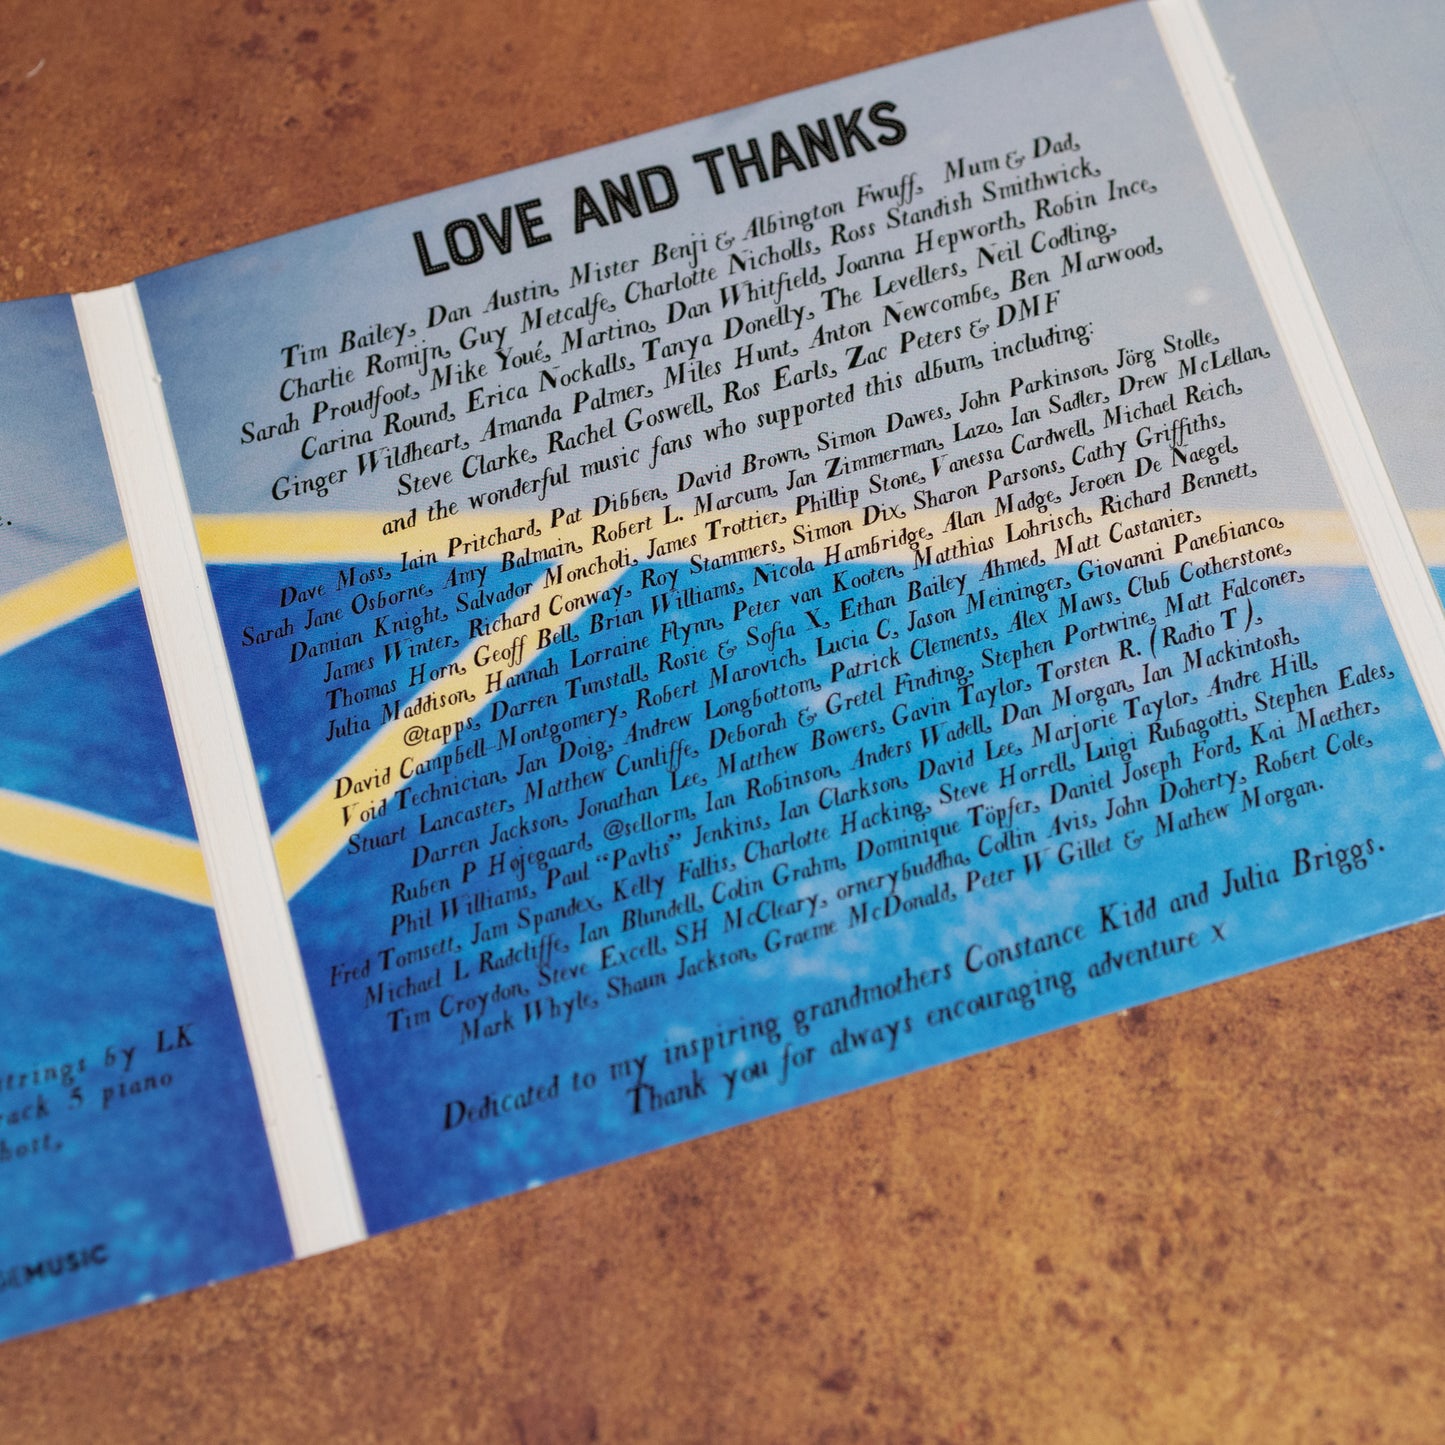 LOVE AND THANKS
Tim Bailey, Dan Austin, Mister Benji & Albington Fwuff, Mum & Dad,
Charlie Romijn, Guy Metcalfe, Charlotte Nicholls, Ross Standish Smithwick,
Sarah Proudfoot, Mike Youé, Martino, Dan Whitfield, Joanna Hepworth, Robin Ince,
Carina Round, Erica Nockalls, Tanya Donelly, The Levellers, Neil Codling,
Ginger Wildheart, Amanda Palmer, Miles Hunt, Anton Newcombe, Ben Marwood,
Steve Clarke, Rachel Goswell, Ros Earls, Zac Peters & DMF
and the wonderful music fans who supported this album, including:
Dave Moss, Iain Pritchard, Pat Dibben, David Brown, Simon Dawes, John Parkinson, Jörg Stolle,
Sarah Jane Osborne, Amy Balmain, Robert L. Marcum, Jan Zimmerman, Lazo, Ian Sadler, Drew McLellan,
Damian Knight, Salvador Moncholi, James Trottier, Phillip Stone, Vanessa Cardwell, Michael Reich,
James Winter, Richard Conway, Roy Stammers, Simon Dix, Sharon Parsons, Cathy Griffiths,
Thomas Horn, Geoff Bell, Brian Williams, Nicola Hambridge, Alan Madge, Jeroen De Naegel,
Julia Maddison, Hannah Lorraine Flynn, Peter van Kooten, Matthias Lohrisch, Richard Bennett,
@tapps, Darren Tunstall, Rosie & Sofia X, Ethan Bailey Ahmed, Matt Castanier,
David Campbell-Montgomery, Robert Marovich, Lucia C, Jason Meininger, Giovanni Panebianco,
Void Technician, Jan Doig, Andrew Longbottom, Patrick Clements, Alex Maws, Club Cotherstone,
Stuart Lancaster, Matthew Cunliffe, Deborah & Gretel Finding, Stephen Portwine, Matt Falconer,
Darren Jackson, Jonathan Lee, Matthew Bowers, Gavin Taylor, Torsten R. (Radio T),
Ruben P Højegaard, @sellorm, Ian Robinson, Anders Wadell, Dan Morgan, Ian Mackintosh,
Phil Williams, Paul "Pavlis" Jenkins, Ian Clarkson, David Lee, Marjorie Taylor, Andre Hill,
Fred Tomsett, Jam Spandex, Kelly Fallis, Charlotte Hacking, Steve Horrell, Luigi Rubagotti, Stephen Eales,
Michael L Radcliffe, Ian Blundell, Colin Grahm, Dominique Töpfer, Daniel Joseph Ford, Kai Maether,
Tim Croydon, Steve Excell, SH McCleary, ornerybuddha, Collin Avis, John Doherty, Robert Cole,
Mark Whyle, Shaun Jackson, Graeme McDonald, Peter W Gillet & Mathew Morgan.
Dedicated to my inspiring grandmothers Constance Kidd and Julia Briggs.
Thank you for always encouraging adventure x
by LK
5 piano
MUSIC